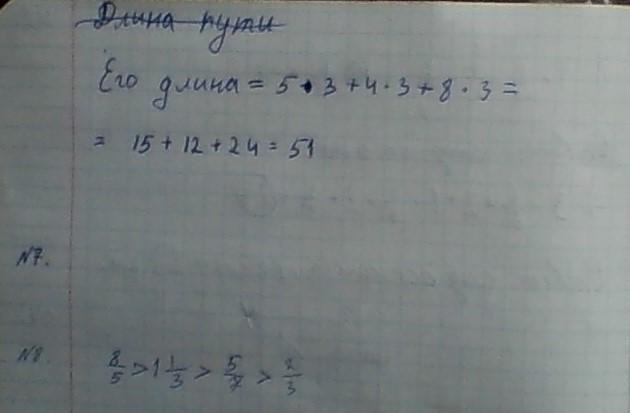 Длина пути
Его длина = 5 · 3 + 4 · 3 + 8 · 3 =
= 15 + 12 + 24 = 51
№7.
№8. 8/5 > 1 1/3 > 5/7 > 2/3